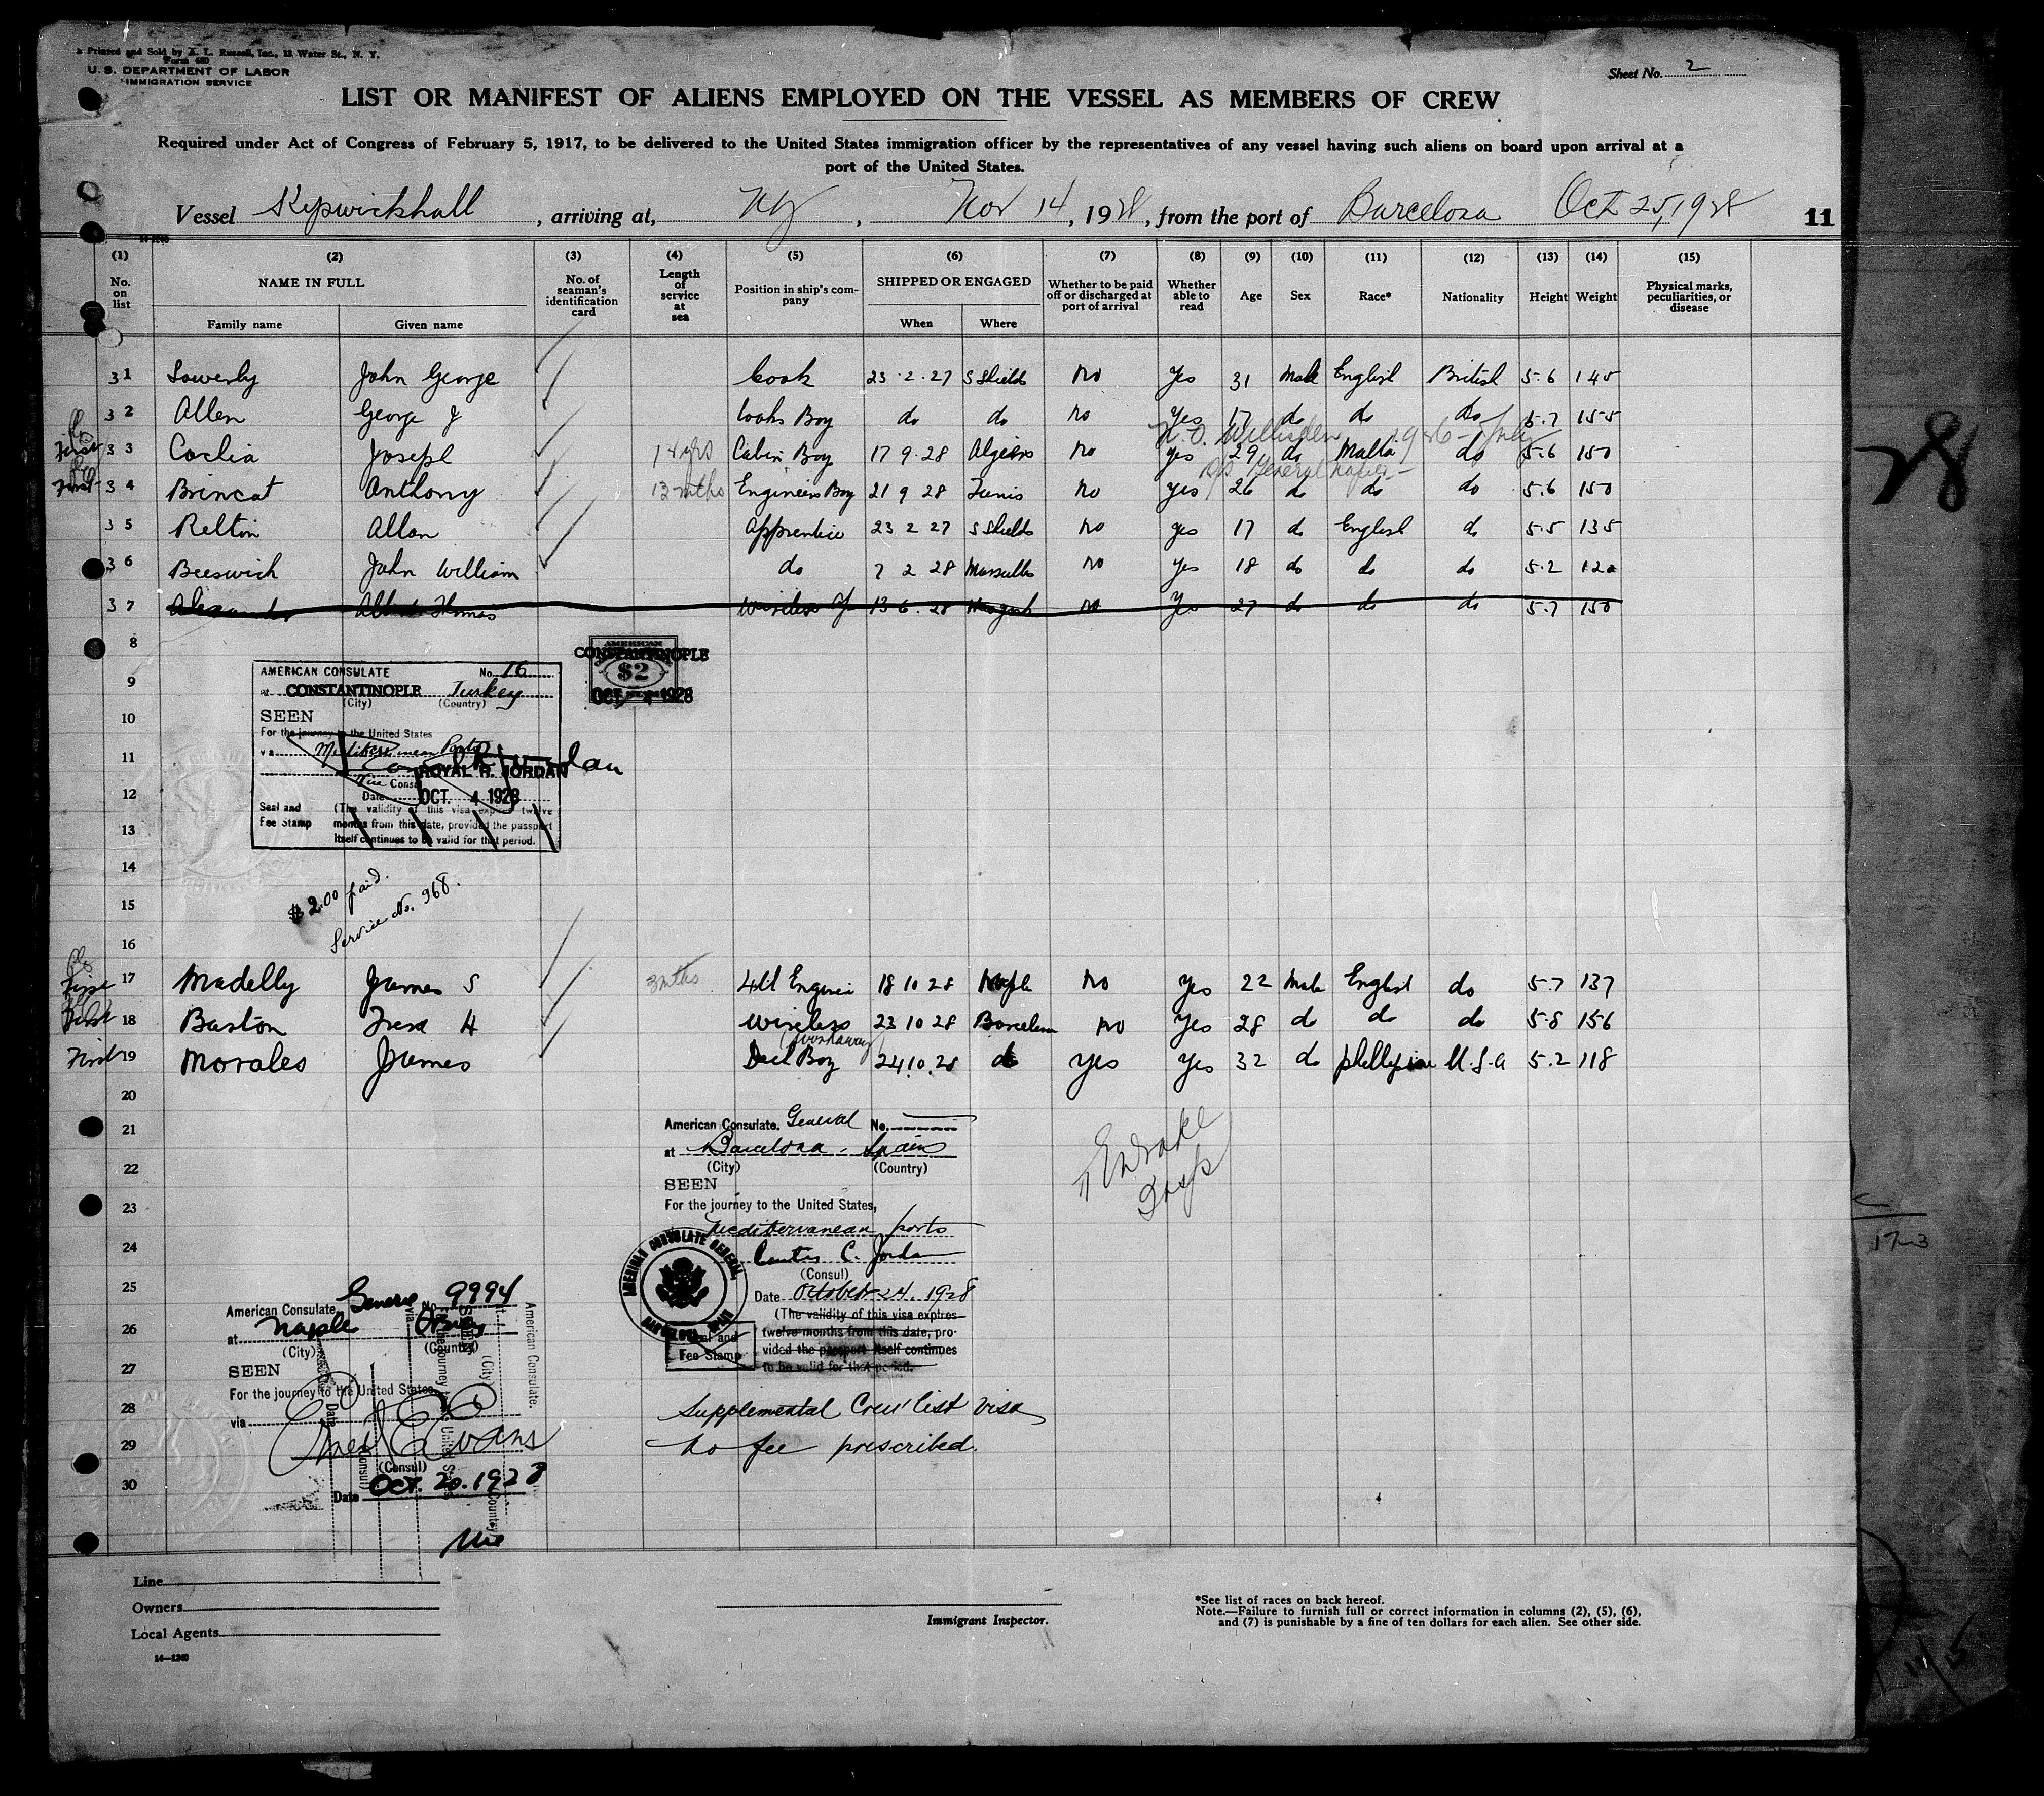 Printed and Sold by A. L. Russell, Inc., 13 Water St., N. Y.
Form 680
U. S. DEPARTMENT OF LABOR
IMMIGRATION SERVICE
Sheet No. 2
LIST OR MANIFEST OF ALIENS EMPLOYED ON THE VESSEL AS MEMBERS OF CREW
Required under Act of Congress of February 5, 1917, to be delivered to the United States immigration officer by the representatives of any vessel having such aliens on board upon arrival at a
port of the United States.
Vessel Kepwickhall, arriving at, NY, Nov 14, 1928, from the port of Barcelona Oct 25, 1928 11
14-1240
(1) (2) (3) (4) (5) (6) (7) (8) (9) (10) (11) (12) (13) (14) (15)
No. on list NAME IN FULL No. of seaman's identification card Length of service at sea Position in ship's company SHIPPED OR ENGAGED Whether to be paid off or discharged at port of arrival Whether able to read Age Sex Race* Nationality Height Weight Physical marks, peculiarities, or disease
Family name Given name When Where
31 Sowerby John George Cook 23.2.27 S Shields No Yes 31 Male English British 5.6 145
32 Allen George J Cooks Boy do do No Yes 17 do do do 5.7 155
First 33 Joseph 14 yrs Cabin Boy 17 9.28 Algiers No yes 29 do Malta do 5.6 150
First 34 Brincat Anthony 13 mths Engineers Boy 21 9 28 Tunis No yes 26 do do do 5.6 150
35 Relton Allan Apprentice 23 2 27 S Shields No yes 17 do English do 5.5 135
36 Beeswick John William do 7 2 28 Marseilles No yes 18 do do do 5.2 120
37 Alexander Thomas Wireless Op 13 6.28 New York No Yes 27 do do do 5.7 150
8
AMERICAN
CONSTANTINOPLE
$2
OCT 4 1928
9
AMERICAN CONSULATE No. 16
at CONSTANTINOPLE Turkey
(City) (Country)
10
SEEN
For the journey to the United States
11
via Mediterranean Ports
ROYAL R. JORDAN
Vice Consul
12
Date OCT. 4 1928
13
Seal and Fee Stamp (The validity of this visa expires twelve
months from this date, provided the passport
itself continues to be valid for that period.
14
$2.00 paid.
15
Service No. 368.
16
First 17 Madelly James S 3 mths 4th Engineer 18 10 28 Naples No Yes 22 Male English do 5.7 137
First 18 Baston Fred H Wireless 23 10 28 Barcelona No Yes 28 do do do 5.8 156
(Workaway)
First 19 Morales James Deck Boy 24.10.28 do yes Yes 32 do phillipine U.S.A 5.2 118
20
21
American Consulate. General No.
at Barcelona - Spain
22
(City) (Country)
SEEN
23
For the journey to the United States,
Mediterranean ports
24
C. Jordan
(Consul)
25
Date October 24. 1928
(The validity of this visa expires
twelve months from this date, provided the passport itself continues
to be valid for that period.
AMERICAN CONSULATE GENERAL
BARCELONA, SPAIN
Seal and
Fee Stamp
American Consulate General No. 9994
26
at Naples Italy
(City) (Country)
27
SEEN
For the journey to the United States,
28
Supplemental Crew list visa
via
29
no fee prescribed.
Evans
(Consul)
30
Date Oct. 20. 1928
Line
Owners
Local Agents
14—1240
Immigrant Inspector.
*See list of races on back hereof.
Note.—Failure to furnish full or correct information in columns (2), (5), (6),
and (7) is punishable by a fine of ten dollars for each alien. See other side.
28